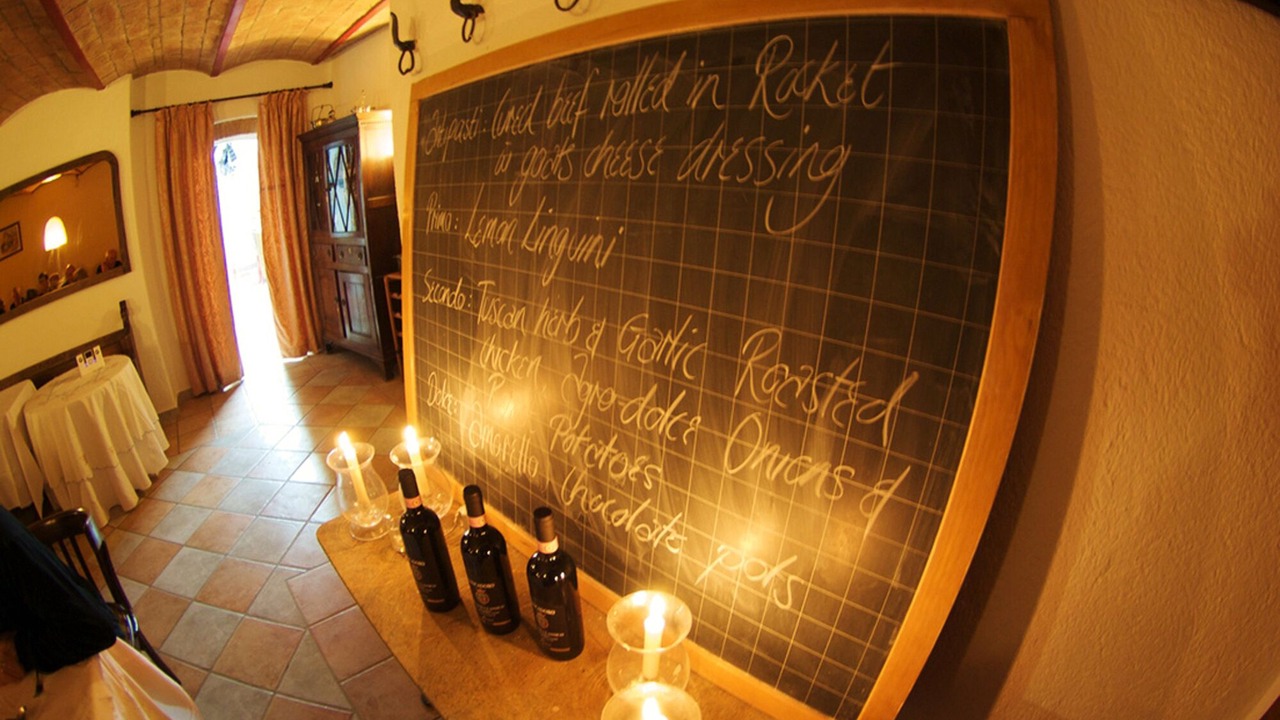 Antipasti: Cured beef rolled in Rocket
in goats cheese dressing
Primo: Lemon Linguini
Secondo: Tuscan herb & Garlic Roasted
chicken Agro-dolce Onions &
Potatoes
Dolce: Amaretto Chocolate pots